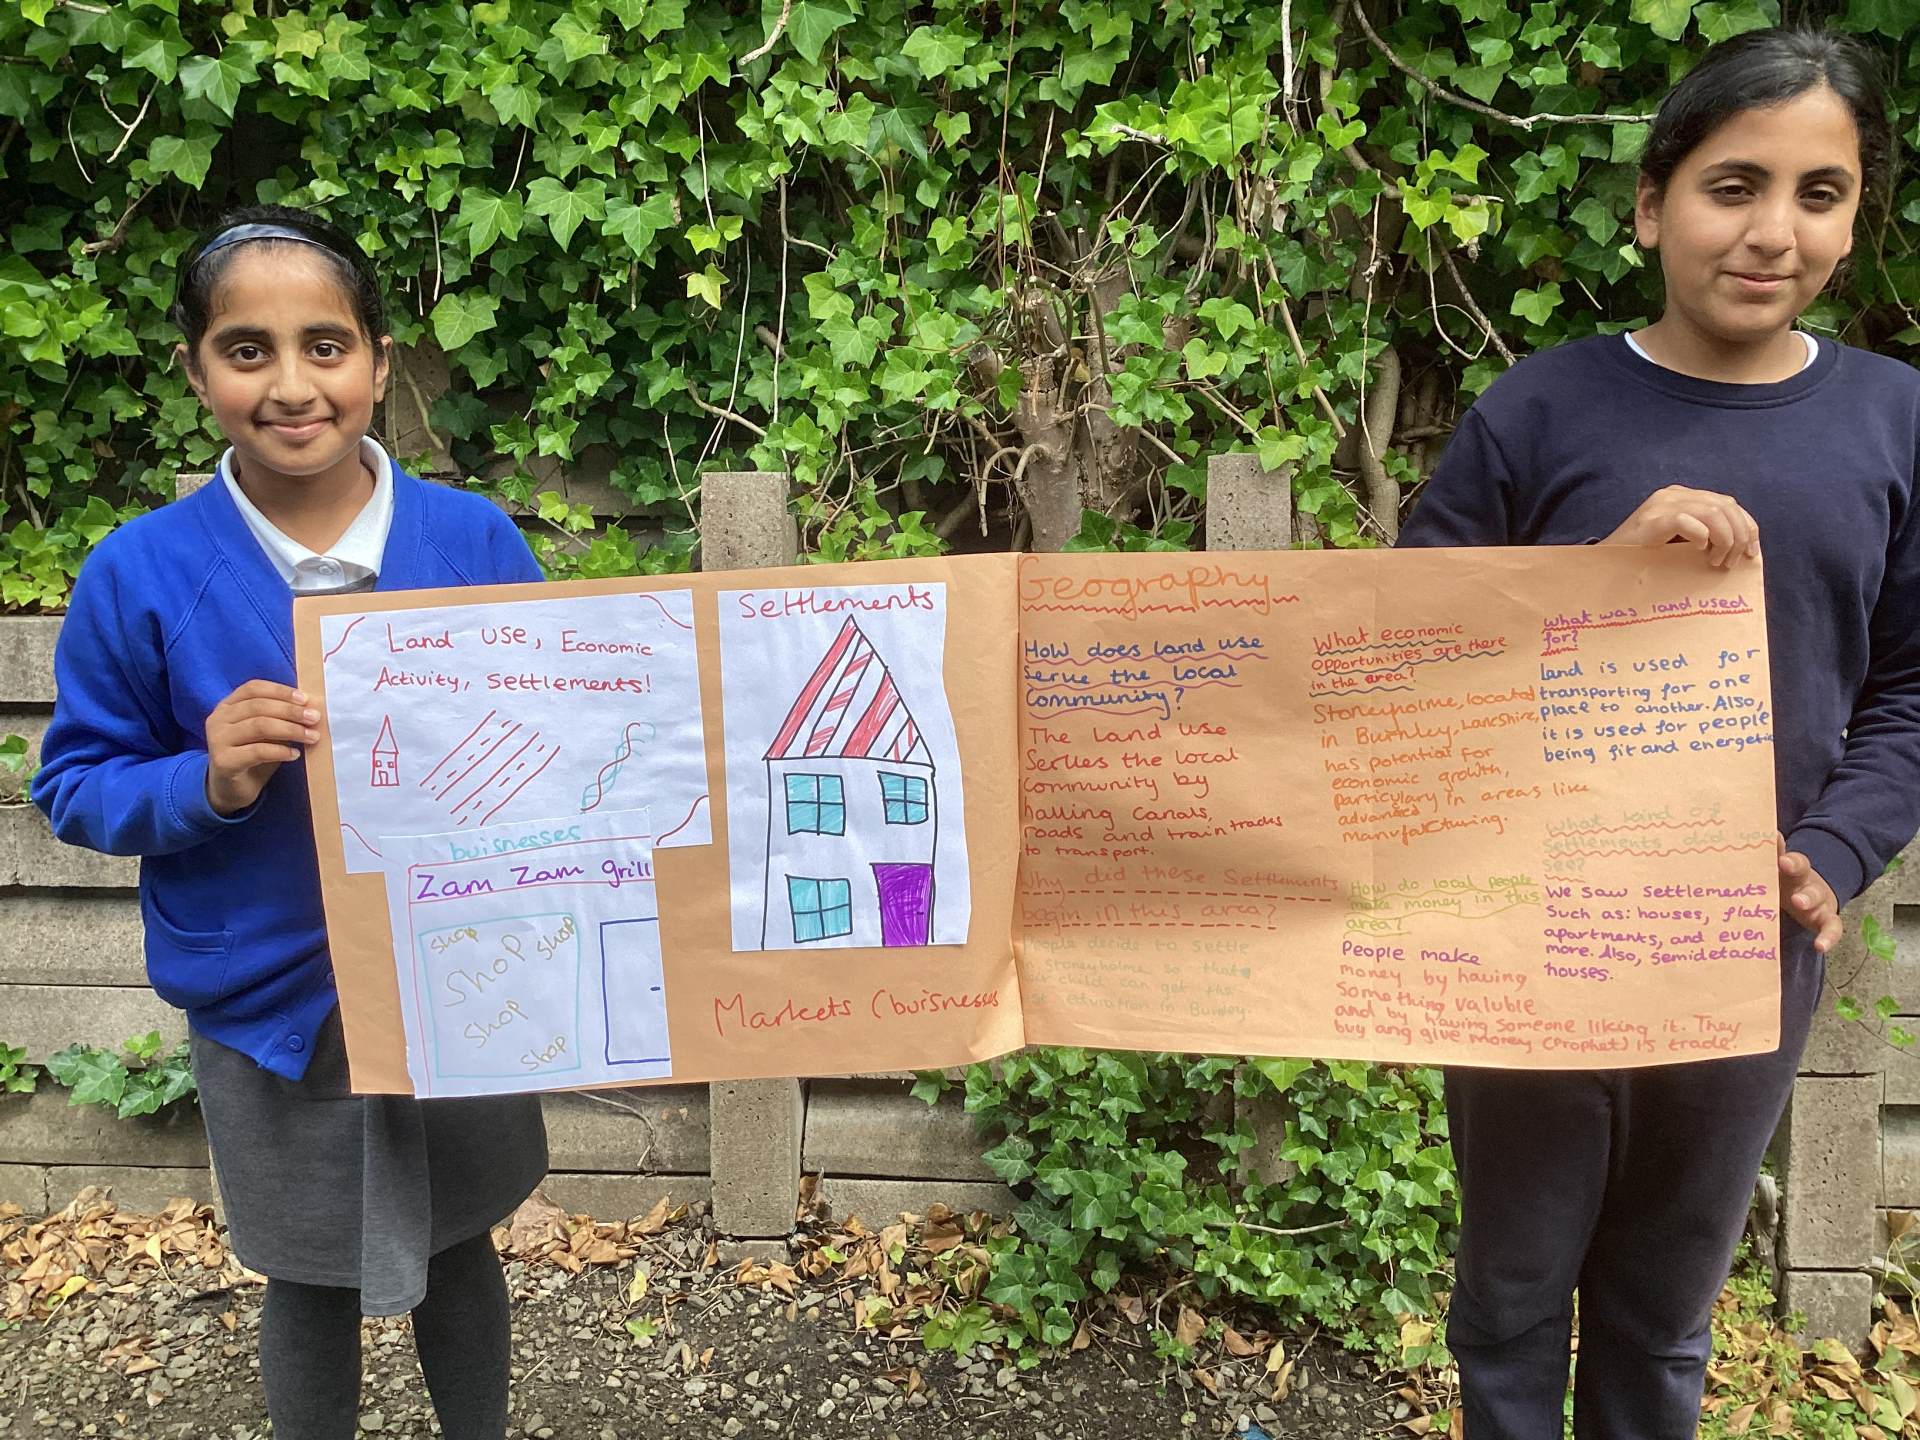 Land use, Economic
Activity, settlements!
buisnesses
Zam Zam grill
shop
shop
shop
shop
shop
Settlements
Markets (buisnesses
Geography
How does land use
serve the local
Community?
The land use
Serves the local
Community by
halling Canals,
roads and train tracks
to transport.
Why did these Settlements
begin in this area?
People decide to settle
Stoneyholme so that
child can get the
education in Burnley.
What economic
opportunities are there
in the area?
Stoneyholme, located
in Burnley, Lancshire,
has potential for
economic growth,
particulary in areas like
advanced
manufacturing.
How do local people
make money in this
area?
People make
money by having
something valuble
and by having someone liking it. They
buy ang give money (Prophet) is trade.
What was land used
for?
Land is used for
transporting for one
place to another. Also,
it is used for people
being fit and energetic
What kind of
Settlements did you
see?
We saw settlements
Such as: houses, flats,
apartments, and even
more. Also, semidetached
houses.